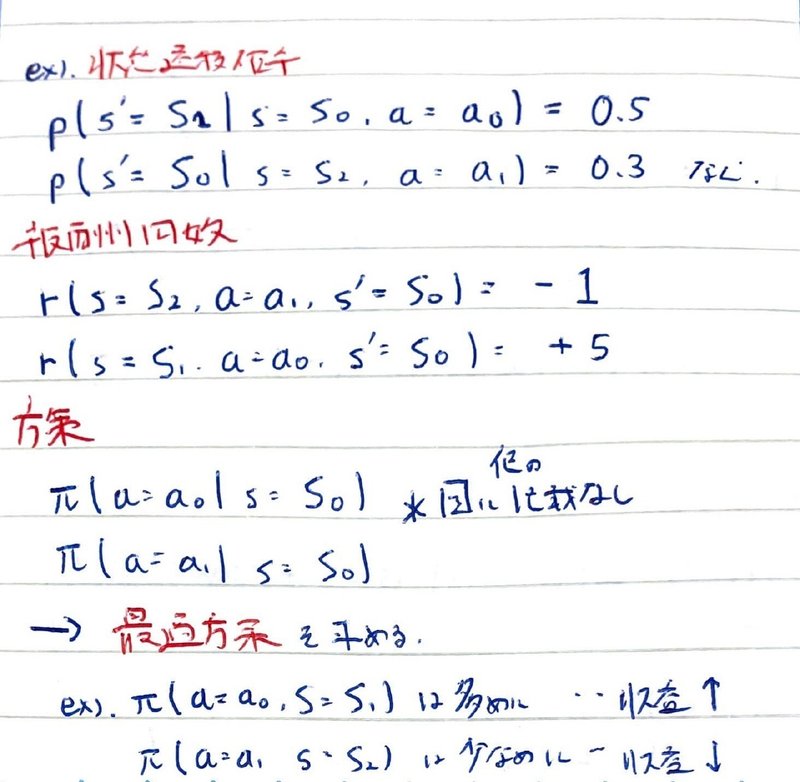 ex). 状態遷移確率
p(s'= S2 | s = S0, a = a0) = 0.5
p(s'= S0 | s = S2, a = a1) = 0.3 など.
報酬関数
r(s = S2, a = a1, s' = S0) = -1
r(s = S1. a = a0. s' = S0) = +5
方策
他の
π(a = a0 | s = S0) * 図に記載なし
π(a = a1 | s = S0)
→ 最適方策を求める.
ex). π(a = a0, S = S1) は多めに ‥ 収益↑
π(a = a1 s = S2) は少なめに - 収益↓